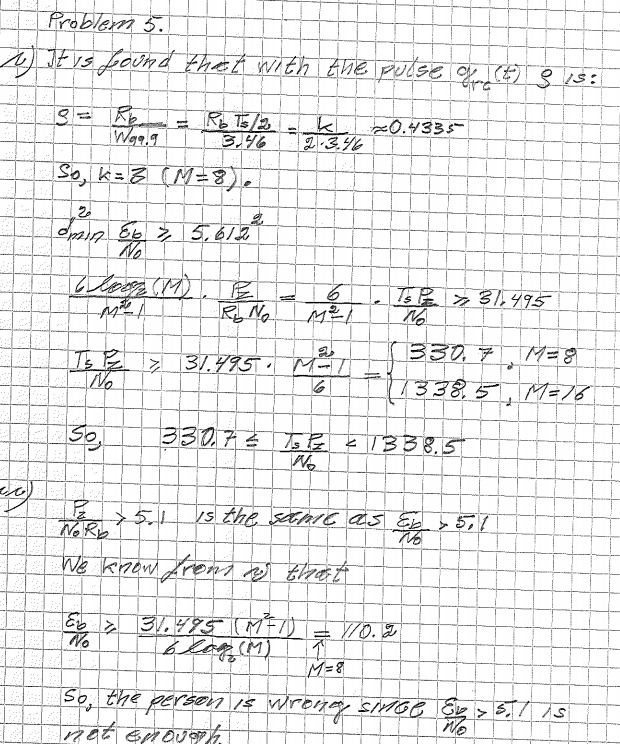 Problem 5.
i) It is found that with the pulse g_rc(t) ρ is:
ρ = R_b / W_99.9 = (R_b T_s/2) / 3.46 = k / (2·3.46) ≈ 0.4335
So, k=3 (M=8).
d²_min ε_b/N_0 ≥ 5.612²
6 log₂(M) / (M²-1) · P_z / (R_b N_0) = 6 / (M²-1) · T_s P_z / N_0 ≥ 31.495
T_s P_z / N_0 ≥ 31.495 · (M²-1) / 6 = { 330.7, M=8
1338.5, M=16
So, 330.7 ≤ T_s P_z / N_0 < 1338.5
ii)
P_z / (N_0 R_b) > 5.1 is the same as ε_b/N_0 > 5.1
We know from i) that
ε_b/N_0 ≥ 31.495 (M²-1) / (6 log₂(M)) = 110.2
↑
M=8
So, the person is wrong since ε_b/N_0 > 5.1 is
not enough.